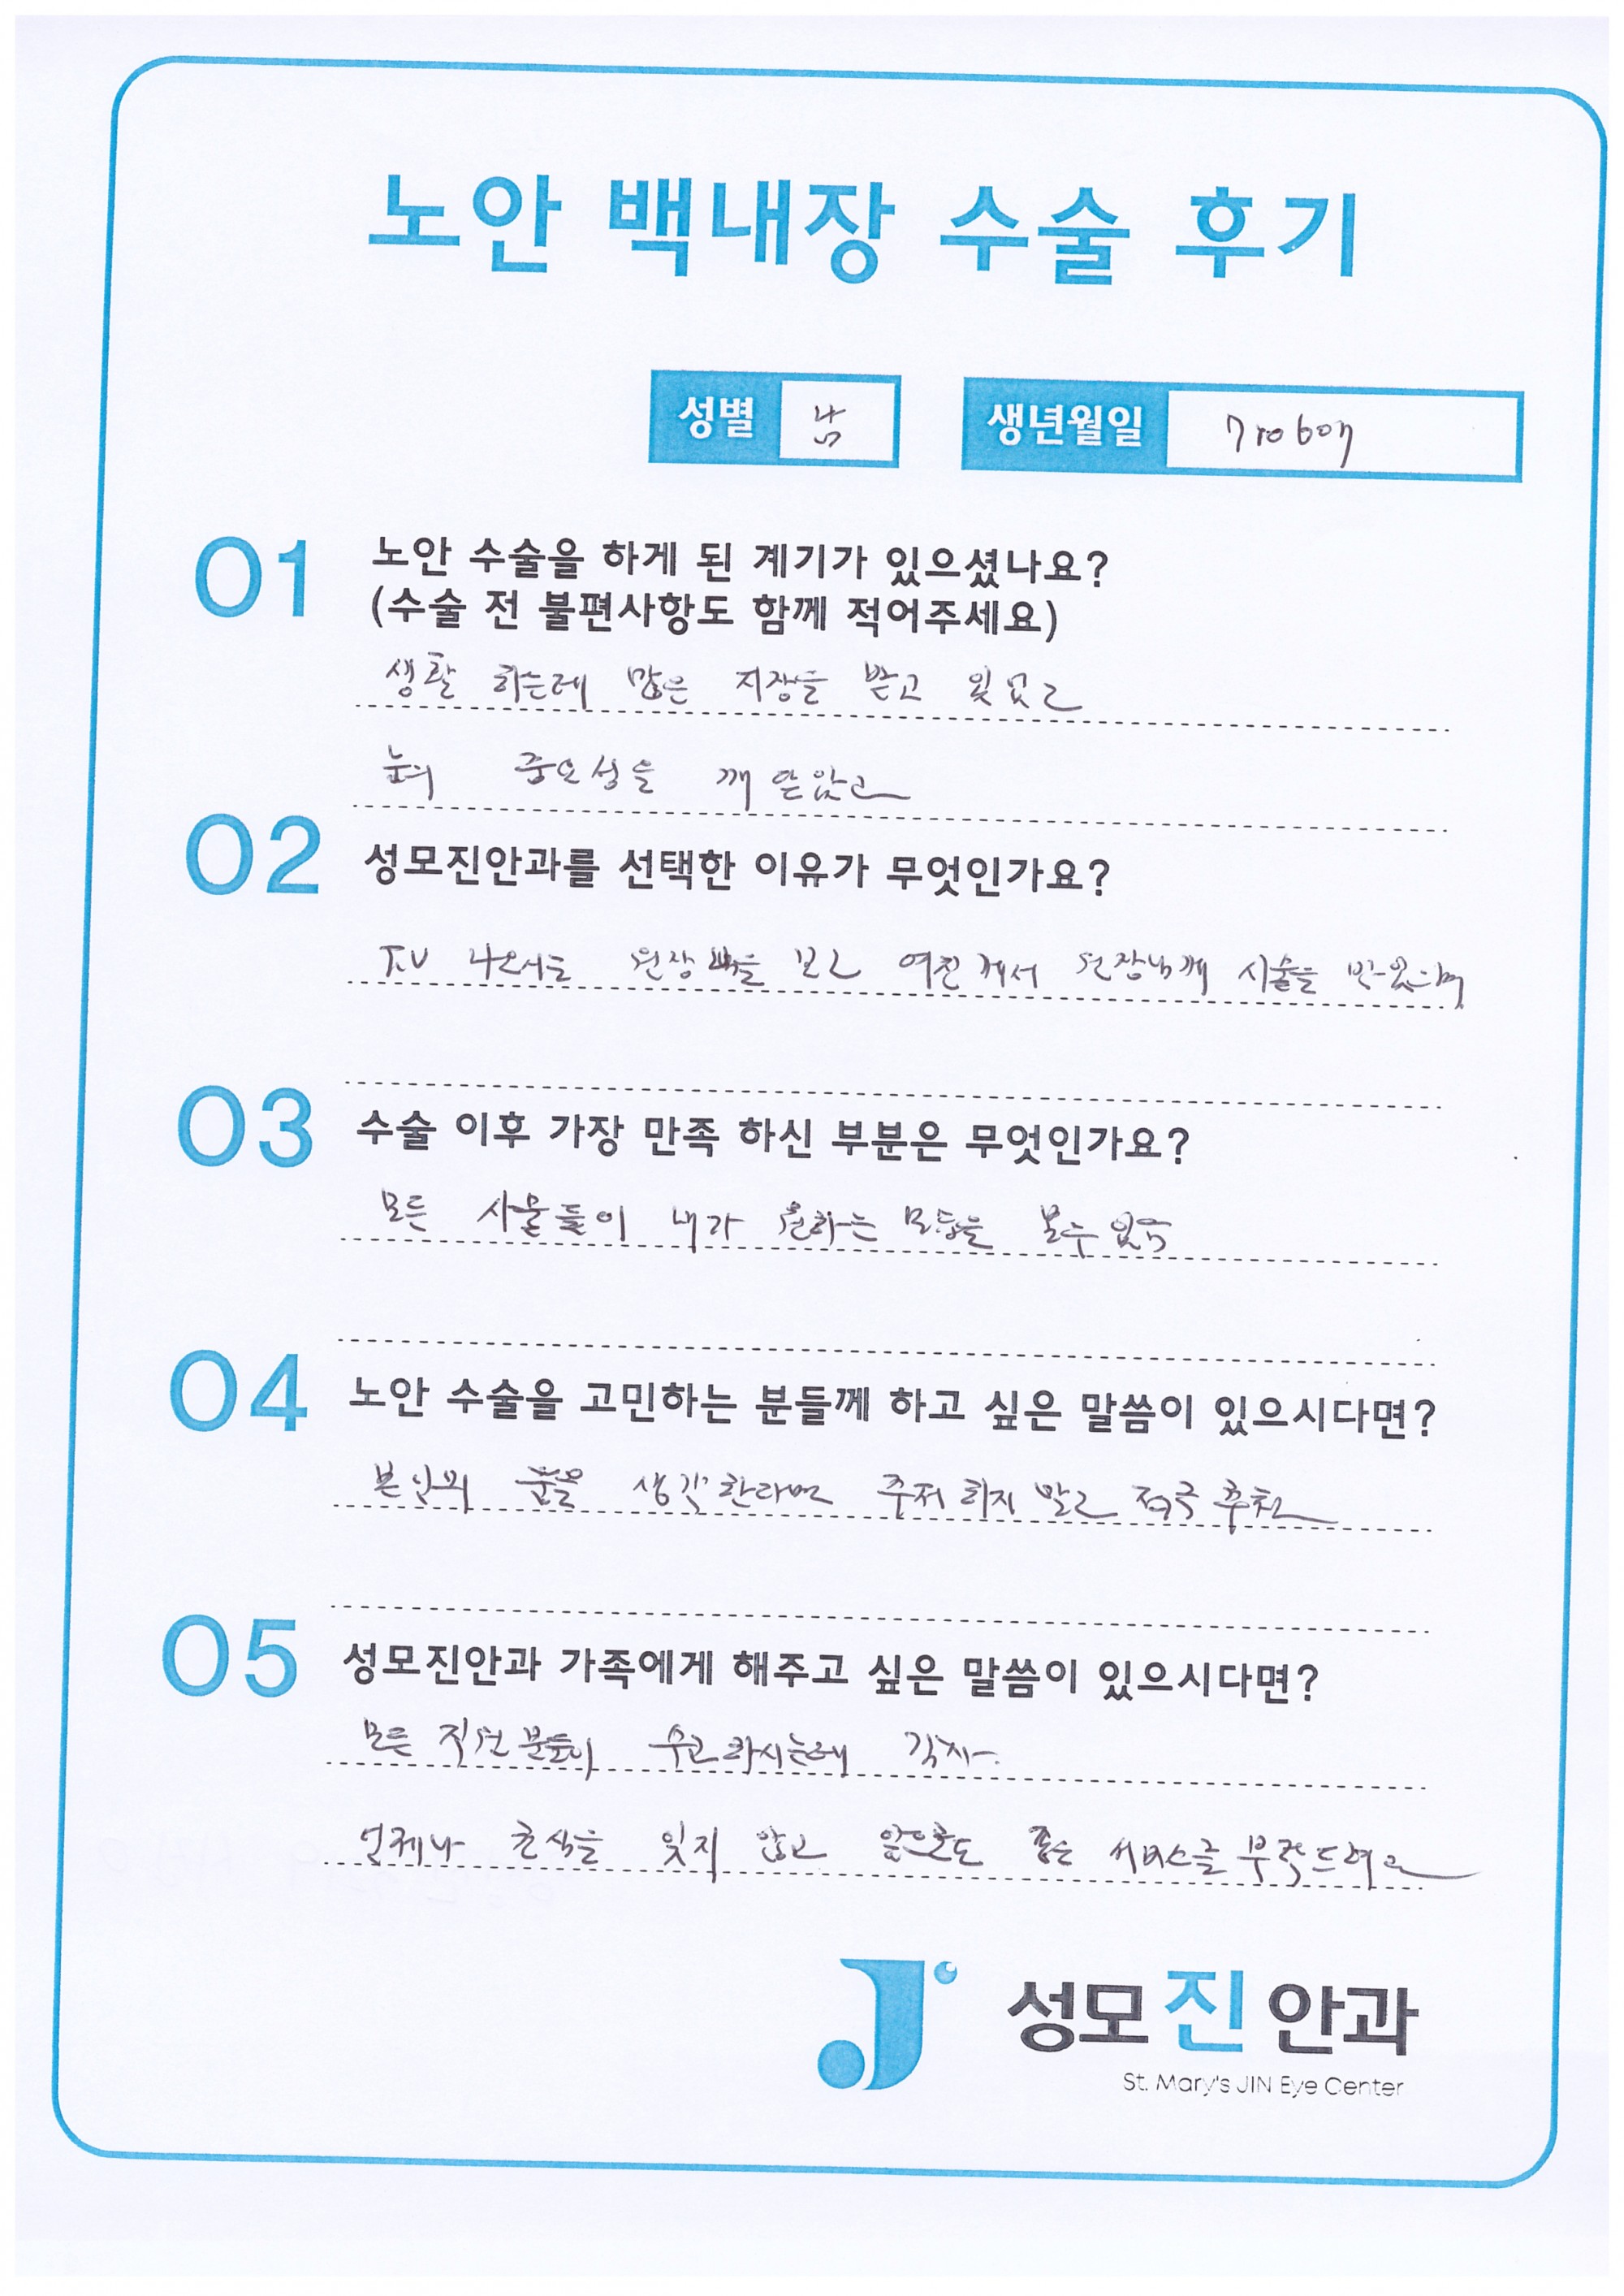 노안 백내장 수술 후기
성별 남 생년월일
01 노안 수술을 하게 된 계기가 있으셨나요?
(수술 전 불편사항도 함께 적어주세요)
생활 하는데 많은 지장을 받고 있었고
눈의 중요성을 깨닫았고
02 성모진안과를 선택한 이유가 무엇인가요?
TV 나오시는 원장 보고 여친께서 원장님께 시술을 받았으며
03 수술 이후 가장 만족 하신 부분은 무엇인가요?
모든 사물들이 내가 원하는 모습을 볼수 있음
04 노안 수술을 고민하는 분들께 하고 싶은 말씀이 있으시다면?
본인의 눈을 생각한다면 주저 하지 말고 적극 추천
05 성모진안과 가족에게 해주고 싶은 말씀이 있으시다면?
모든 직원분들이 수고하시는데 감사.
언제나 초심을 잊지 않고 앞으로도 좋은 서비스를 부탁드려요
성모진안과
St. Mary's JIN Eye Center